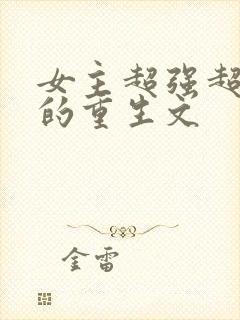 女主超强超
的重生文
金雷